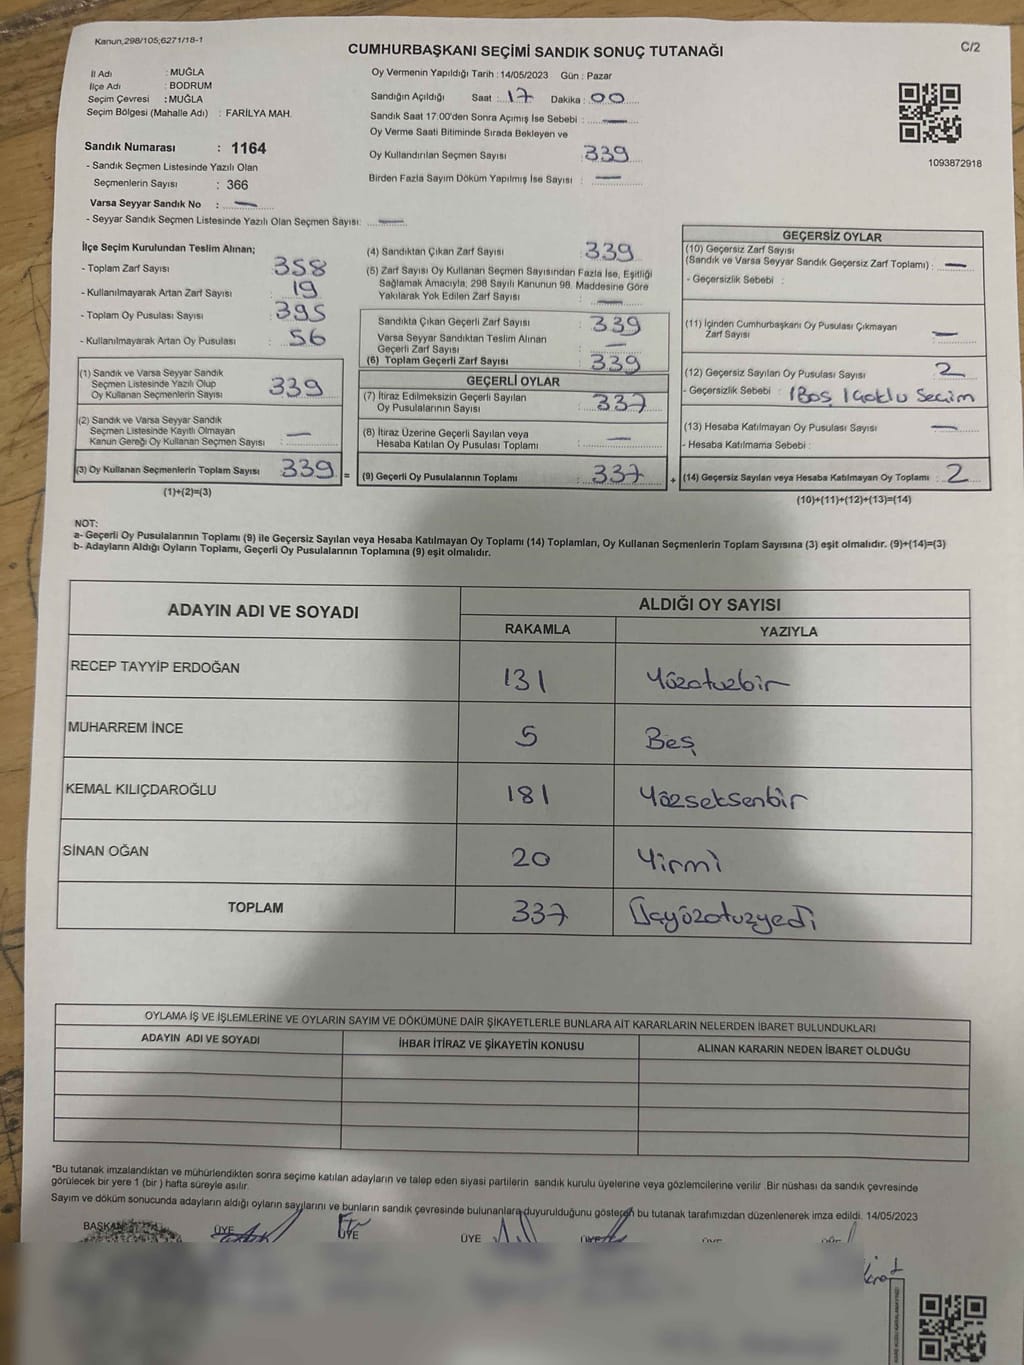 Kanun,298/105;6271/18-1
CUMHURBAŞKANI SEÇİMİ SANDIK SONUÇ TUTANAĞI
C/2
İl Adı : MUĞLA
İlçe Adı : BODRUM
Seçim Çevresi : MUĞLA
Seçim Bölgesi (Mahalle Adı) : FARİLYA MAH.
Sandık Numarası : 1164
- Sandık Seçmen Listesinde Yazılı Olan
Seçmenlerin Sayısı : 366
Varsa Seyyar Sandık No : —
- Seyyar Sandık Seçmen Listesinde Yazılı Olan Seçmen Sayısı: —
Oy Vermenin Yapıldığı Tarih : 14/05/2023 Gün : Pazar
Sandığın Açıldığı Saat : 17 Dakika : 00
Sandık Saat 17:00'den Sonra Açımış İse Sebebi : —
Oy Verme Saati Bitiminde Sırada Bekleyen ve
Oy Kullandırılan Seçmen Sayısı : 339
Birden Fazla Sayım Döküm Yapılmış İse Sayısı : —
1093872918
İlçe Seçim Kurulundan Teslim Alınan;
- Toplam Zarf Sayısı : 358
- Kullanılmayarak Artan Zarf Sayısı : 19
- Toplam Oy Pusulası Sayısı : 395
- Kullanılmayarak Artan Oy Pusulası : 56
(1) Sandık ve Varsa Seyyar Sandık
Seçmen Listesinde Yazılı Olup
Oy Kullanan Seçmenlerin Sayısı : 339
(2) Sandık ve Varsa Seyyar Sandık
Seçmen Listesinde Kayıtlı Olmayan
Kanun Gereği Oy Kullanan Seçmen Sayısı : —
(3) Oy Kullanan Seçmenlerin Toplam Sayısı : 339 =
(1)+(2)=(3)
(4) Sandıktan Çıkan Zarf Sayısı : 339
(5) Zarf Sayısı Oy Kullanan Seçmen Sayısından Fazla İse, Eşitliği
Sağlamak Amacıyla; 298 Sayılı Kanunun 98. Maddesine Göre
Yakılarak Yok Edilen Zarf Sayısı : —
Sandıkta Çıkan Geçerli Zarf Sayısı : 339
Varsa Seyyar Sandıktan Teslim Alınan
Geçerli Zarf Sayısı : —
(6) Toplam Geçerli Zarf Sayısı : 339
GEÇERLİ OYLAR
(7) İtiraz Edilmeksizin Geçerli Sayılan
Oy Pusulalarının Sayısı : 337
(8) İtiraz Üzerine Geçerli Sayılan veya
Hesaba Katılan Oy Pusulası Toplamı : —
(9) Geçerli Oy Pusulalarının Toplamı : 337 +
GEÇERSİZ OYLAR
(10) Geçersiz Zarf Sayısı
(Sandık ve Varsa Seyyar Sandık Geçersiz Zarf Toplamı) : —
- Geçersizlik Sebebi :
(11) İçinden Cumhurbaşkanı Oy Pusulası Çıkmayan
Zarf Sayısı : —
(12) Geçersiz Sayılan Oy Pusulası Sayısı : 2
- Geçersizlik Sebebi : 1Boş 1Çoklu Seçim
(13) Hesaba Katılmayan Oy Pusulası Sayısı : —
- Hesaba Katılmama Sebebi :
(14) Geçersiz Sayılan veya Hesaba Katılmayan Oy Toplamı : 2
(10)+(11)+(12)+(13)=(14)
NOT:
a- Geçerli Oy Pusulalarının Toplamı (9) ile Geçersiz Sayılan veya Hesaba Katılmayan Oy Toplamı (14) Toplamları, Oy Kullanan Seçmenlerin Toplam Sayısına (3) eşit olmalıdır. (9)+(14)=(3)
b- Adayların Aldığı Oyların Toplamı, Geçerli Oy Pusulalarının Toplamına (9) eşit olmalıdır.
ADAYIN ADI VE SOYADI ALDIĞI OY SAYISI
RAKAMLA YAZIYLA
RECEP TAYYİP ERDOĞAN 131 Yüzotuzbir
MUHARREM İNCE 5 Beş
KEMAL KILIÇDAROĞLU 181 Yüzseksenbir
SİNAN OĞAN 20 Yirmi
TOPLAM 337 Üçyüzotuzyedi
OYLAMA İŞ VE İŞLEMLERİNE VE OYLARIN SAYIM VE DÖKÜMÜNE DAİR ŞİKAYETLERLE BUNLARA AİT KARARLARIN NELERDEN İBARET BULUNDUKLARI
ADAYIN ADI VE SOYADI İHBAR İTİRAZ VE ŞİKAYETİN KONUSU ALINAN KARARIN NEDEN İBARET OLDUĞU
*Bu tutanak imzalandıktan ve mühürlendikten sonra seçime katılan adayların ve talep eden siyasi partilerin sandık kurulu üyelerine veya gözlemcilerine verilir .Bir nüshası da sandık çevresinde
görülecek bir yere 1 (bir ) hafta süreyle asılır.
Sayım ve döküm sonucunda adayların aldığı oyların sayılarını ve bunların sandık çevresinde bulunanlara duyurulduğunu gösteren bu tutanak tarafımızdan düzenlenerek imza edildi. 14/05/2023
BAŞKAN ÜYE ÜYE ÜYE ÜYE